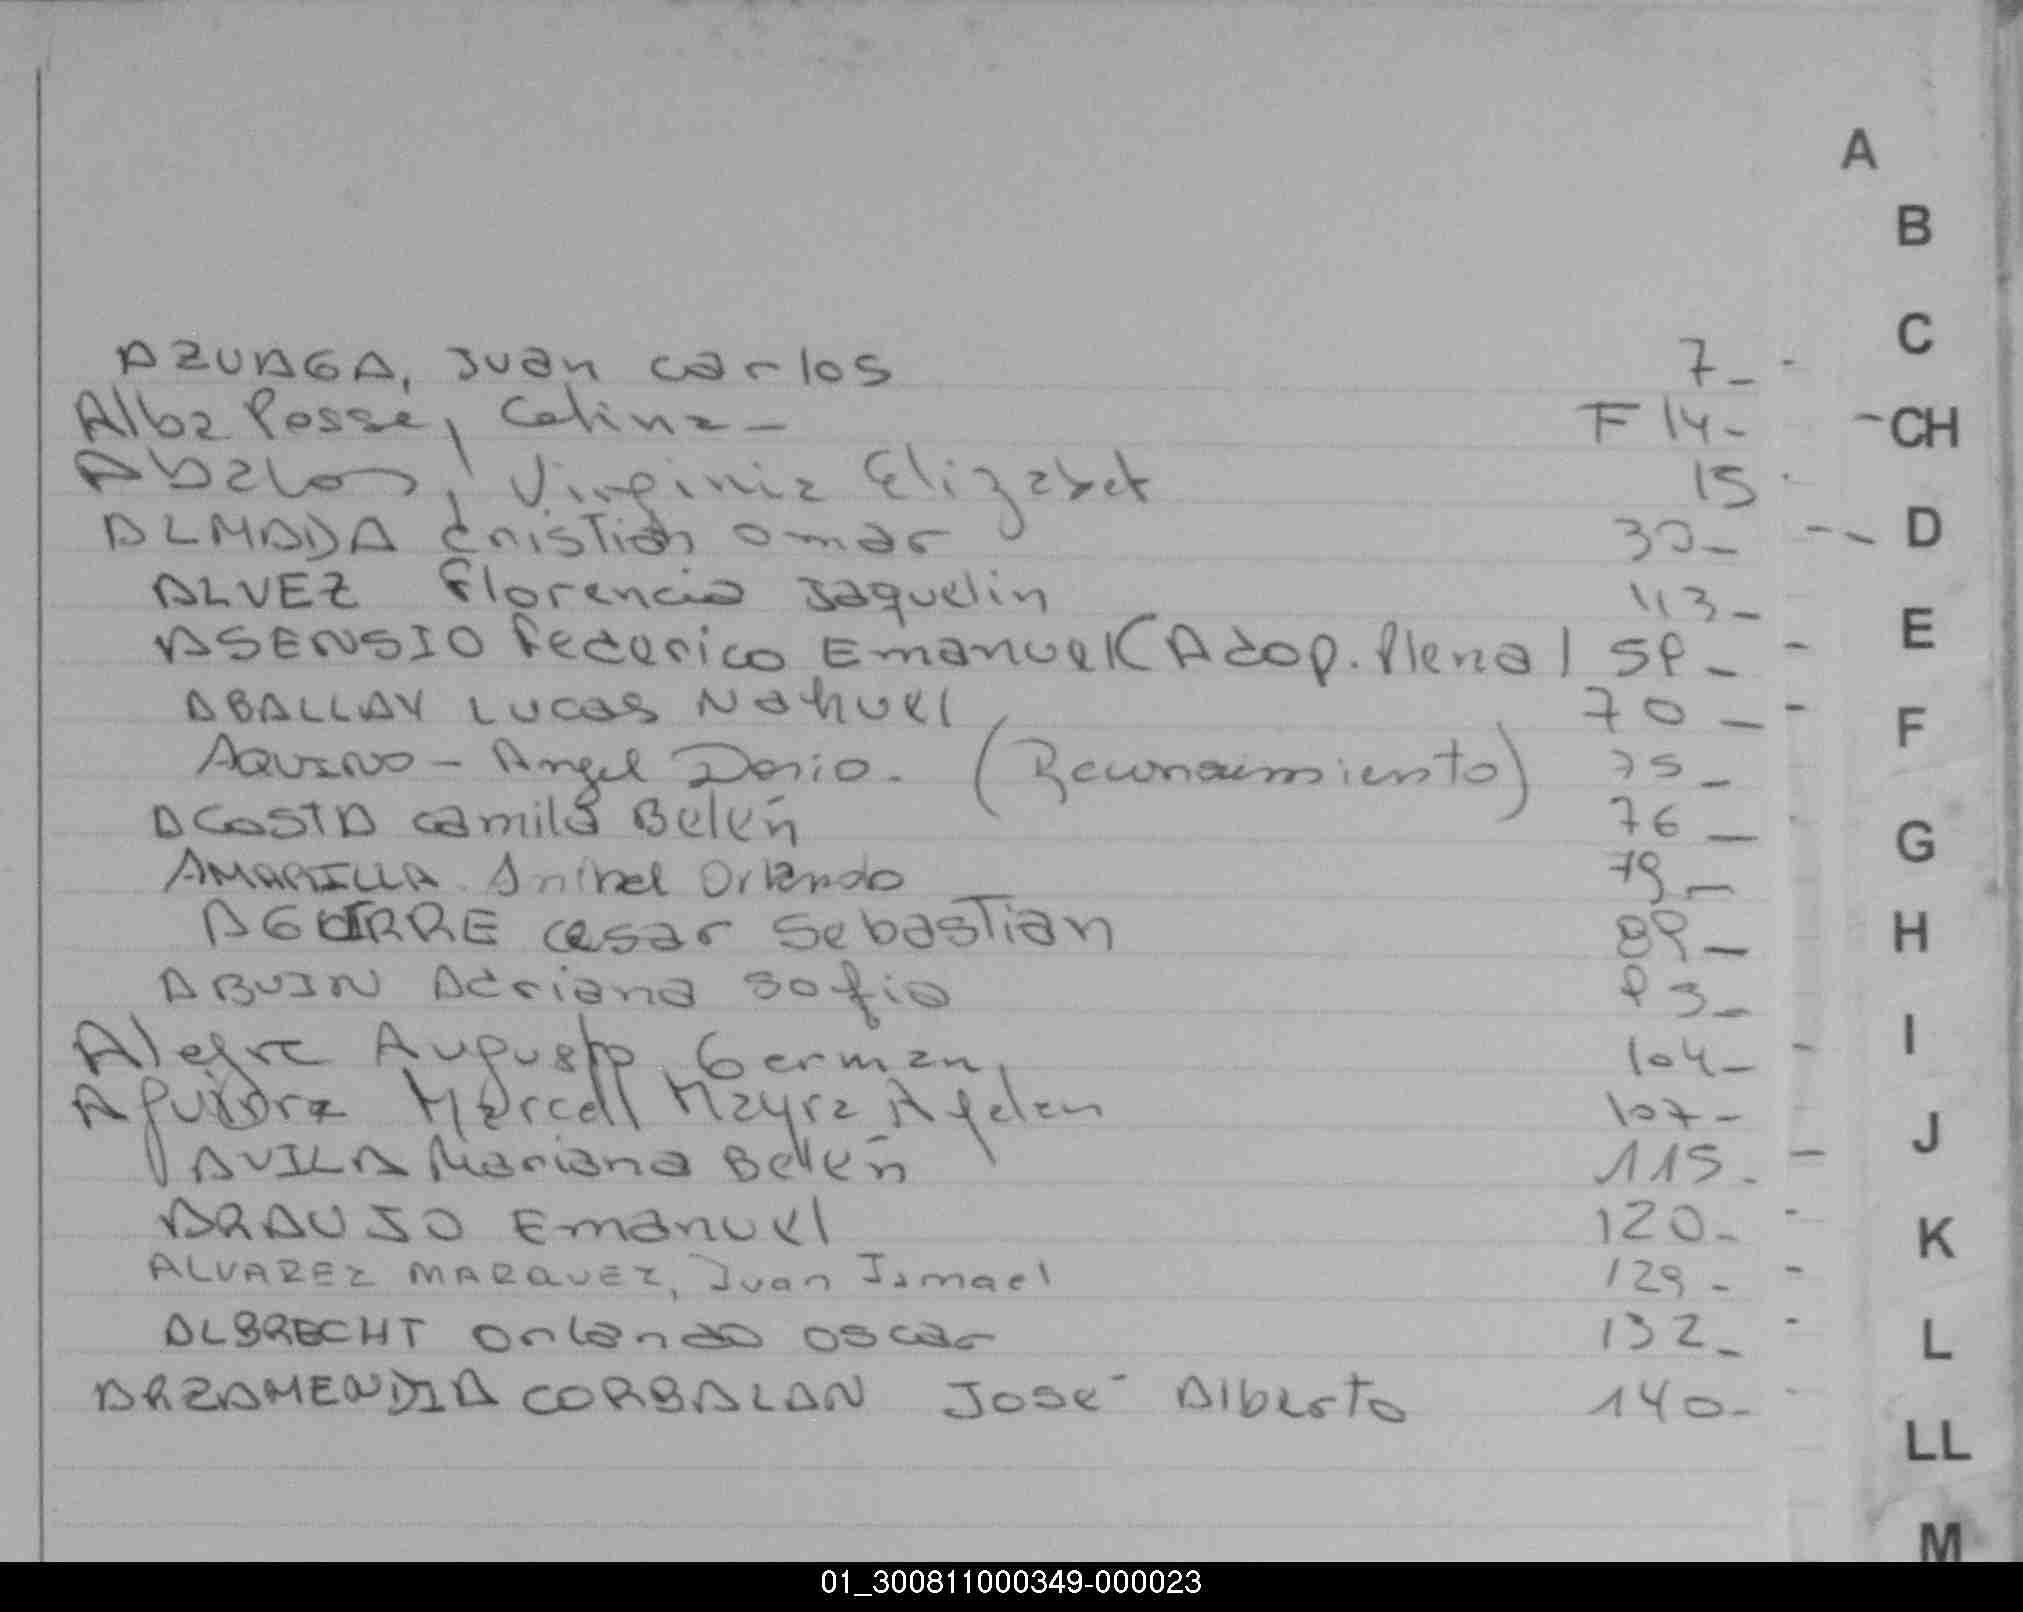 A
B
C
CH
D
E
F
G
H
I
J
K
L
LL
M
AZUAGA, Juan Carlos 7-
Alba Posse, Celina - F 14-
Abalos, Virginia Elizabet 15
ALMADA Cristian Omar 30-
ALVEZ Florencia Jaquelin 43-
ASENSIO Federico Emanuel (Adop. Plena) 59-
ABALLAY Lucas Nahuel 70-
AQUINO - Angel Dario. (Reconocimiento) 75-
ACOSTA Camila Belén 76-
AMARILLA Anibal Orlando 79-
AGUIRRE Cesar Sebastian 89-
ABUIN Adriana Sofia 93-
Alegre Augusto German, 104-
Aguirre Mayra Ayelen 107-
AVILA Mariana Belén 115-
ARAUJO Emanuel 120-
ALVAREZ MARQUEZ, Juan Ismael 129-
ALBRECHT Orlando Oscar 132-
ARZAMENDIA CORBALAN José Alberto 140-
01_300811000349-000023